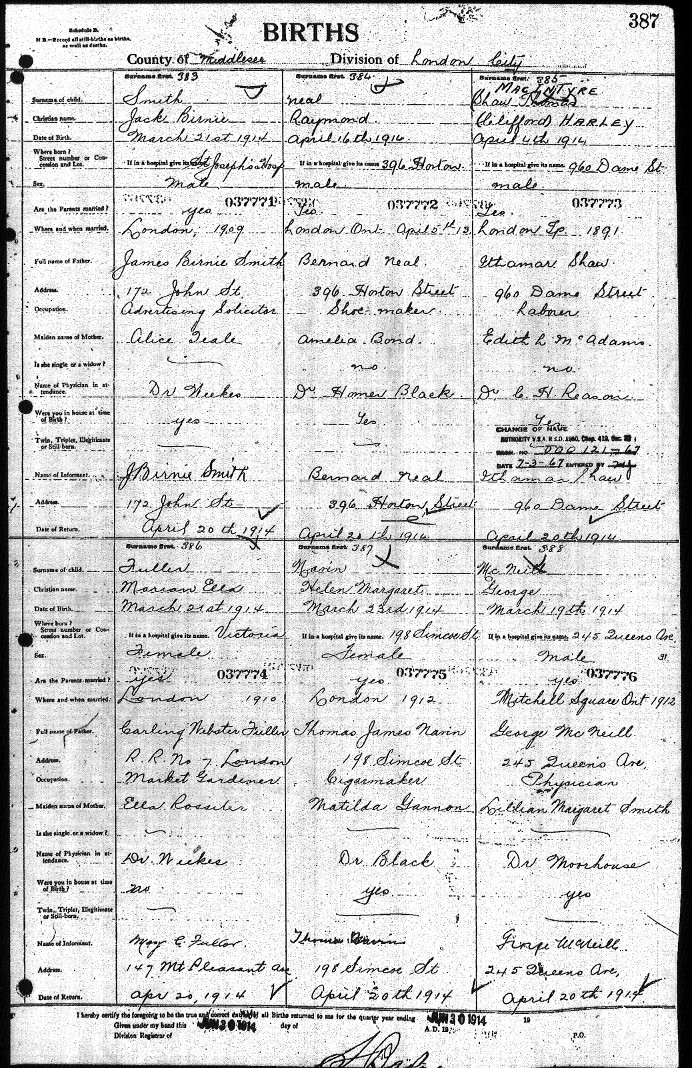 387
Schedule B.
N.B.—Record all still-births as births, as well as deaths.
BIRTHS
County of Middlesex Division of London City
Surname first. 383 Surname first. 384 Surname first. 385
MACINTYRE
Surname of child. Smith Neal Shaw
Christian name. Jack Birnie Raymond Clifford HARLEY
Date of Birth. March 21st 1914 April 16th 1914 April 4th 1914
Where born? Street number or Concession and Lot. If in a hospital give its name St Joseph's Hosp If in a hospital give its name 396 Horton If in a hospital give its name. 960 Dame St.
Sex. Male male. male.
037771 037772 037773
Are the Parents married? yes Yes Yes.
Where and when married. London, 1909 London Ont April 5th 12 London Tp. 1891
Full name of Father. James Birnie Smith Bernard Neal. Ithamar Shaw
Address. 172 John St. 396 Horton Street 960 Dame Street
Occupation. Advertising Solicitor Shoe maker. Laborer
Maiden name of Mother. Alice Teale Amelia Bond. Edith L McAdams
Is she single or a widow? no no
Name of Physician in attendance. Dr Weekes Dr Homer Black Dr C. H. Reason
Were you in house at time of Birth? yes Yes Yes
CHANGE OF NAME
AUTHORITY V.S.A. R.S.O. 1960, Chap. 419, Sec.
000121-67
DATE 7-3-67 ENTERED BY
Twin, Triplet, Illegitimate or Still-born.
Name of Informant. J Birnie Smith Bernard Neal Ithamar Shaw
Address. 172 John St. 396 Horton Street 960 Dame Street
Date of Return. April 20th 1914 April 20th 1914 April 20th 1914
Surname first. 386 Surname first. 387 Surname first. 388
Surname of child. Fuller Navin McNeill
Christian name. Marian Ella Helen Margaret George
Date of Birth. March 21st 1914 March 23rd 1914 March 19th 1914
Where born? Street number or Concession and Lot. If in a hospital give its name. Victoria If in a hospital give its name. 198 Simcoe St If in a hospital give its name. 245 Queens Ave,
Sex. Female Female Male 31
037774 037775 037776
Are the Parents married? yes yes yes
Where and when married. London 1910 London 1912 Mitchell Square Ont 1912
Full name of Father. Carling Webster Fuller Thomas James Navin George McNeill
Address. R.R. No 7, London 198 Simcoe St 245 Queens Ave,
Occupation. Market Gardiner Cigarmaker Physician
Maiden name of Mother. Ella Rossiter Matilda Gannon Lillian Margaret Smith
Is she single or a widow?
Name of Physician in attendance. Dr. Weekes Dr Black Dr Moorhouse
Were you in house at time of Birth? no yes yes
Twin, Triplet, Illegitimate or Still-born.
Name of Informant. Mary E Fuller Thomas Navin George McNeill
Address. 147 Mt Pleasant Ave 198 Simcoe St 245 Queens Ave,
Date of Return. Apr 20, 1914 April 20th 1914 April 20th 1914
I hereby certify the foregoing to be the true and correct of all Births returned to me for the quarter year ending JUN 30 1914 19
Given under my hand this JUN 30 1914 day of A.D. 19
Division Registrar of P.O.